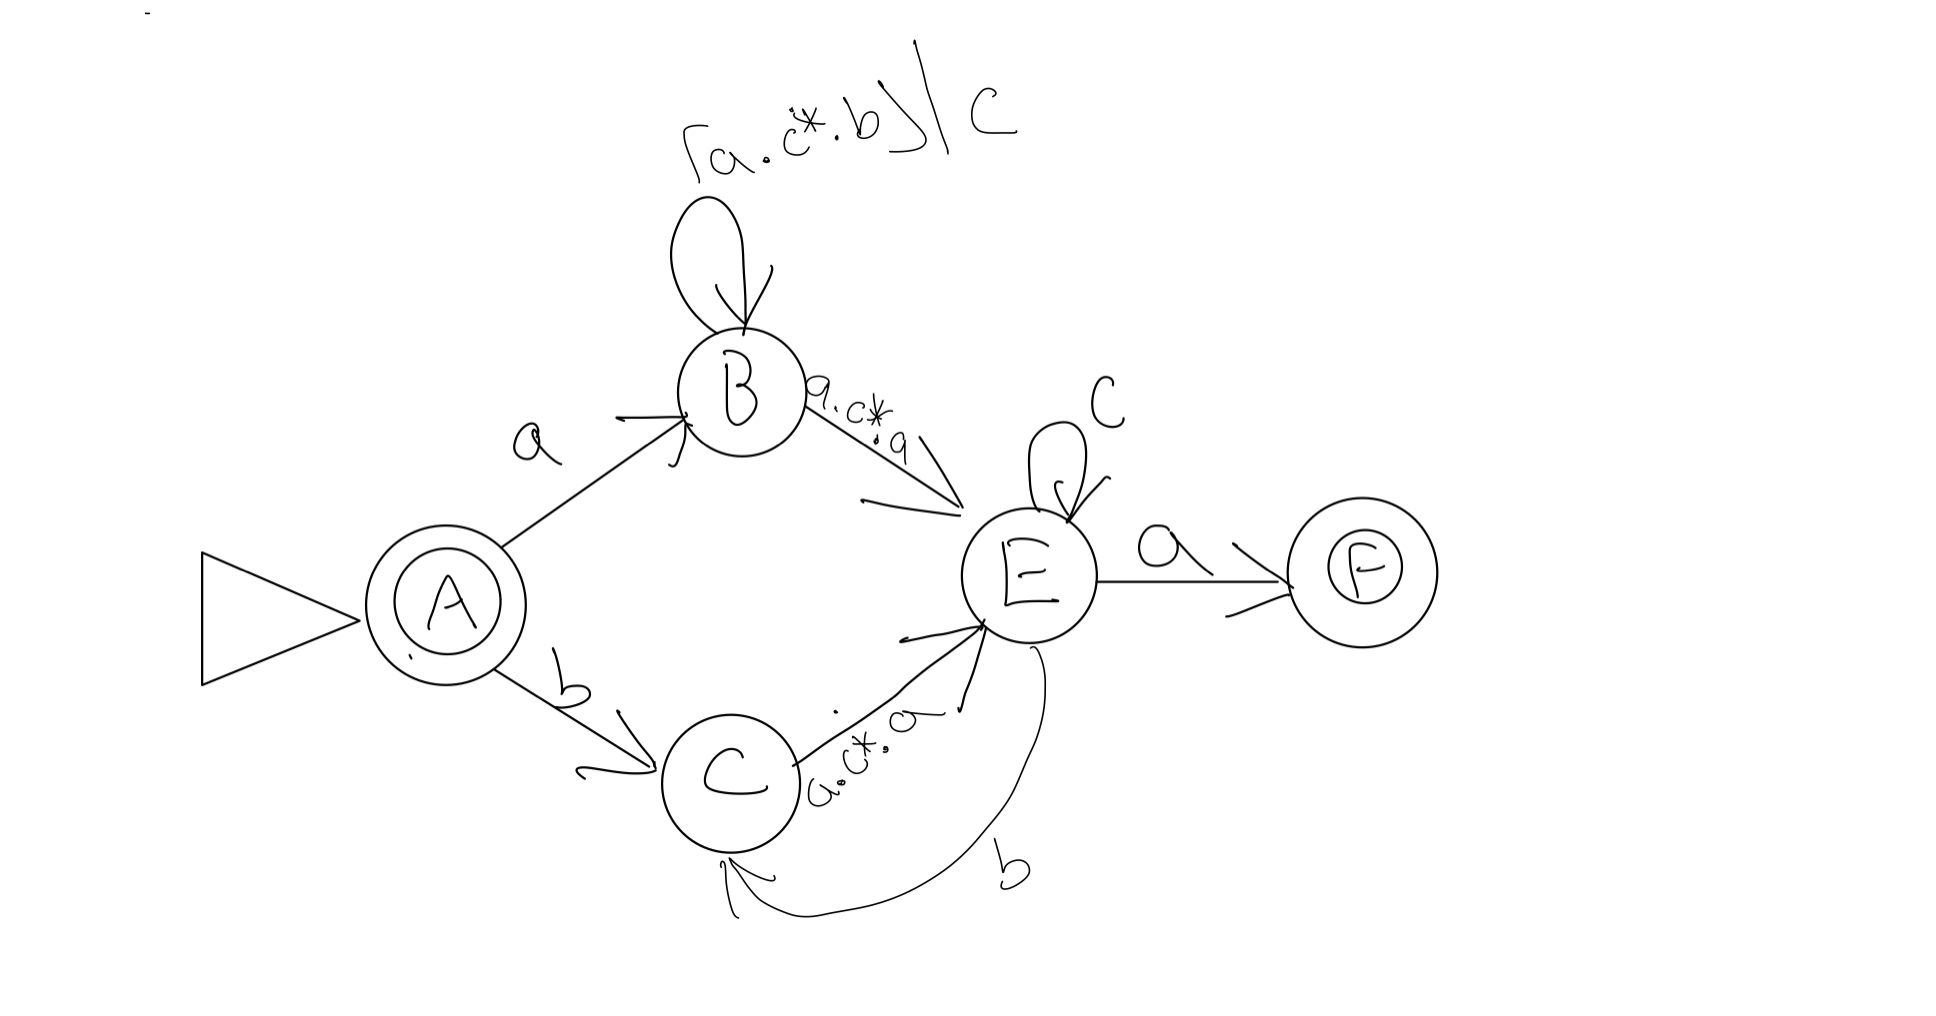 (a.c*.b)|c
B
a.c*.a
c
a
E
a
F
A
b
C
a.c*.a
b